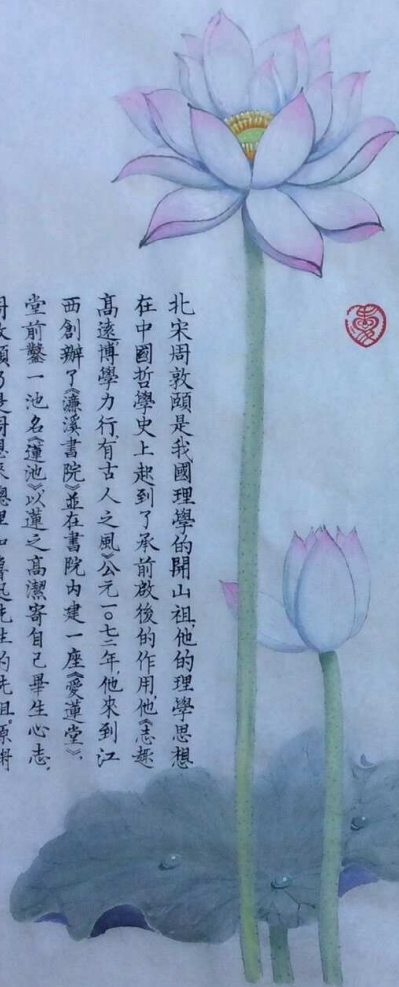 北宋周敦頤是我國理學的開山祖，他的理學思想
在中國哲學史上起到了承前啟後的作用，他《志趣
高遠，博學力行，有古人之風》公元一〇七二年，他來到江
西創辦了《濂溪書院》並在書院內建一座《愛蓮堂》，
堂前鑿一池名《蓮池》以蓮之高潔寄自己畢生心志，
周敦頤乃是周恩來總理和魯迅先生的先祖。原
愛